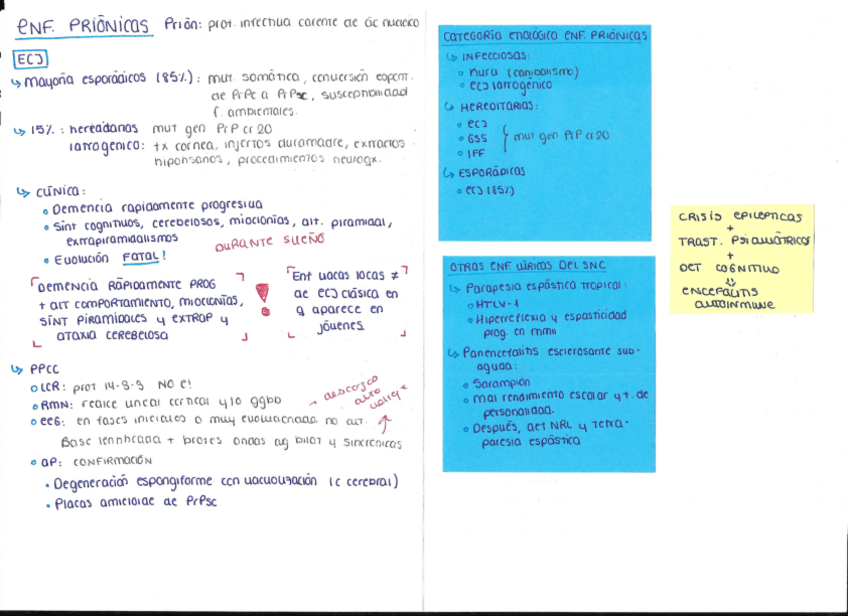 ENF. PRIÓNICAS Prión: prot. infecciosa carente de ác nucleico
ECJ
↳ Mayoría esporádicos (85%): mut. somática, conversión espont.
de PrPc a PrPsc, susceptibilidad
f. ambientales.
↳ 15%: hereditarios mut gen PrP cr 20
iatrogénico: tx cornea, injertos duramadre, extractos
hipofisarios, procedimientos neuroqx.
↳ clínica:
• Demencia rapidamente progresiva
• Sint cognitivos, cerebelosos, mioclonías, alt. piramidal,
extrapiramidalismos
DURANTE SUEÑO
• Evolución FATAL!
DEMENCIA RÁPIDAMENTE PROG
+ alt COMPORTAMIENTO, MIOCLONÍAS,
SÍNT PIRAMIDALES y EXTRAP y
ATAXIA CEREBELOSA
!
Enf vacas locas ≠
de ECJ clásica en
q aparece en
jóvenes.
↳ PPCC
• LCR: prot 14-3-3 NO e!
• RMN: realce lineal cortical y/o ggbb
→ descarga
• EEG: en fases iniciales o muy evolucionada no alt.
Base lentificada + brotes ondas ag bilat y sincrónicos
• AP: CONFIRMACIÓN
• Degeneración espongiforme con vacuolización (c cerebral)
• Placas amieloide de PrPsc
CATEGORÍA ETIOLÓGICO ENF. PRIÓNICAS
↳ INFECCIOSAS:
• Kuru (canibalismo)
• ECJ iatrogénico
↳ HEREDITARIAS:
• ECJ
• GSS
• IFF
mut gen PrP cr 20
↳ ESPORÁDICAS
• ECJ (85%)
OTRAS ENF VÍRICAS DEL SNC
↳ Parapesia espástica tropical:
• HTLV-1
• Hiperreflexia y espasticidad
prog. en mmii
↳ Panencefalitis esclerosante sub-
aguda:
• Sarampión
• Mal rendimiento escolar y t. de
personalidad.
• Después, det NRL y tetra-
paresia espástica
CRISIS EPILEPTICAS
+
TRAST. PSIQUIÁTRICOS
+
DET COGNITIVO
⇓
ENCEFALITIS
AUTOINMUNE